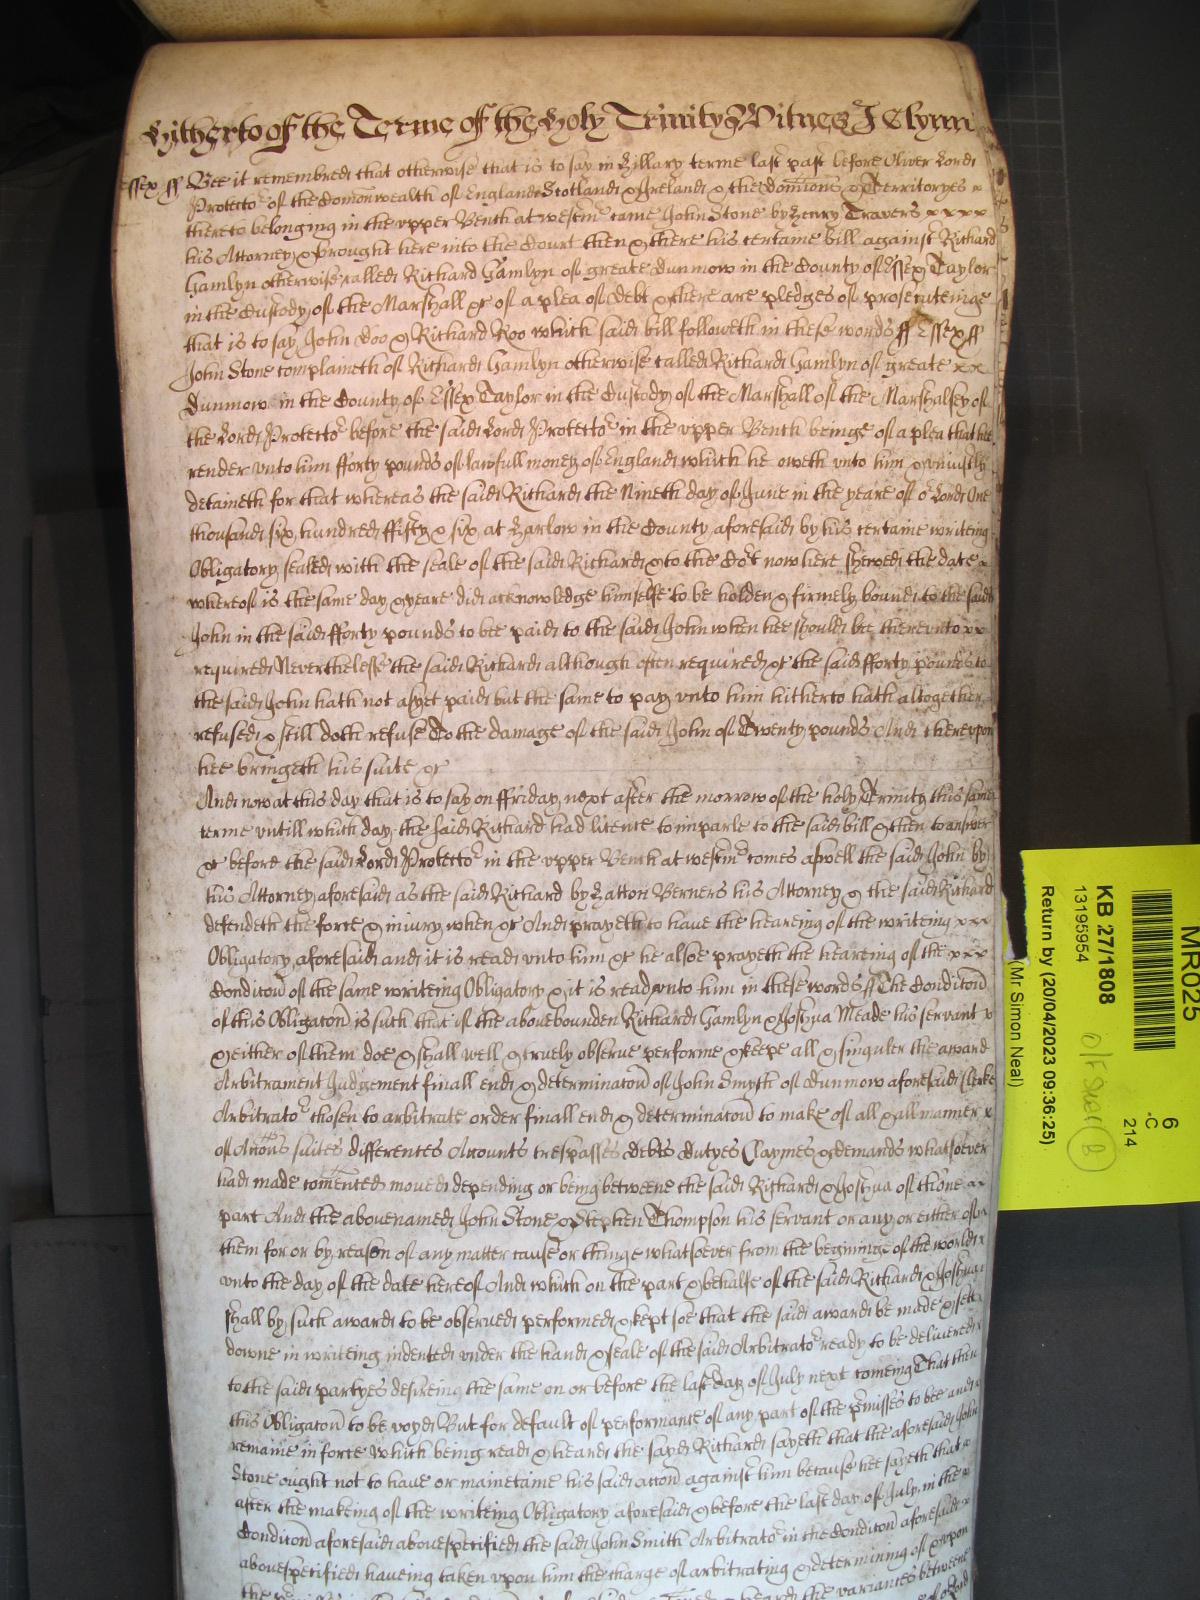 Hitherto of the Terme of the Holy Trinity Witnes J Glynn
Essex ss Bee it remembred that otherwise that is to say in Hillary terme last past before Oliver Lord
Protector of the Comonwealth of England Scotland & Ireland & the domions & Territoryes
thereto belonging in the vpper Bench at westmr came John Stone by Henry Travers x x x x
his Attorney & brought here into the Court then & there his certaine bill against Richard
Hamlyn otherwise called Richard Hamlyn of greate dunmow in the County of Essex Taylor
in the Custody of the Marshall &c of a plea of debt & there are pledges of prosecuteinge
that is to say John doo & Richard Roo which said bill followeth in these words ss Essex ss
John Stone complaineth of Richard Hamlyn otherwise called Richard Hamlyn of greate x x
dunmow in the County of Essex Taylor in the Custody of the Marshall of the Marshalsey of
the Lord Protector before the said Lord Protector in the vpper Bench beinge of a plea that he
render vnto him fforty pounds of lawfull money of England which he oweth vnto him & vniustly
detaineth for that whereas the said Richard the Nineth day of June in the yeare of or Lord One
thousand six hundred ffifty & six at Harlow in the County aforesaid by his certaine writeing
Obligatory sealed with the seale of the said Richard & to the Cort now here shewed the date
whereof is the same day & yeare did acknowledge himselfe to be holden & firmely bound to the said
John in the said fforty pounds to bee paid to the said John when hee should be therevnto x x
required Neverthelesse the said Richard although often required &c the said fforty pounds to
the said John hath not as yet paid but the same to pay vnto him hitherto hath altogether
refused & still doth refuse To the damage of the said John of Twenty pounds And therevpon
hee bringeth his suite &c
And now at this day that is to say on ffriday next after the morrow of the holy Trinity this same
terme vntill which day the said Richard had licence to imparle to the said bill & then to answer
&c before the said Lord Protector in the vpper Bench at westmr comes aswell the said John by
his Attorney aforesaid as the said Richard by Hatton Berners his Attorney & the said Richard
defendeth the force & iniury when &c And prayeth to have the heareing of the writeing x x x
Obligatory aforesaid and it is read vnto him &c he alsoe prayeth the heareing of the x x x
Conditon of the same writeing Obligatory & it is read vnto him in these words ss The Conditon
of this Obligaton is such that if the abovebounden Richard Hamlyn & Joshua Meade his servant
& either of them doe & shall well & truely observe performe & keepe all & singuler the award
Arbitrament Judgement finall end & determinaton of John Smyth of dunmow aforesaid Clerke
Arbitrator chosen to arbitrate order finall end & determinaton to make of all & all manner x
of Accons suites differences Accounts trespasses debts dutyes Claymes & demands whatsoever
had made comenced moved depending or being betweene the said Richard & Joshua of thone
part And the abovenamed John Stone & Stephen Thompson his servant or any or either of
them for or by reason of any matter cause or thinge whatsoever from the beginninge of the world
vnto the day of the date hereof And which on the part & behalfe of the said Richard & Joshua
shall by such award to be observed performed & kept soe that the said award be made & sett
downe in writeing indented vnder the hand & seale of the said Arbitrator ready to be delivered
to the said partyes desireing the same on or before the last day of July next comeing That then
this Obligaton to be voyd But for default of performance of any part of the pmisses to bee and
remaine in force Which being read & heard the sayd Richard sayeth that the aforesaid John
Stone ought not to have or mainetaine his said accon against him because hee sayeth that
after the makeing of the writeing Obligatory aforesaid & before the last day of July in the
Conditon aforesaid abovespecified the said John Smith Arbitrator in the Conditon aforesaid
abovespecified haveing taken vpon him the charge of arbitrating & determining of & vpon
the heard the variances betweene
MR025
6
-C
214
KB 27/1808
13195954
Return by (20/04/2023 09:36:25)
(Mr Simon Neal)
B